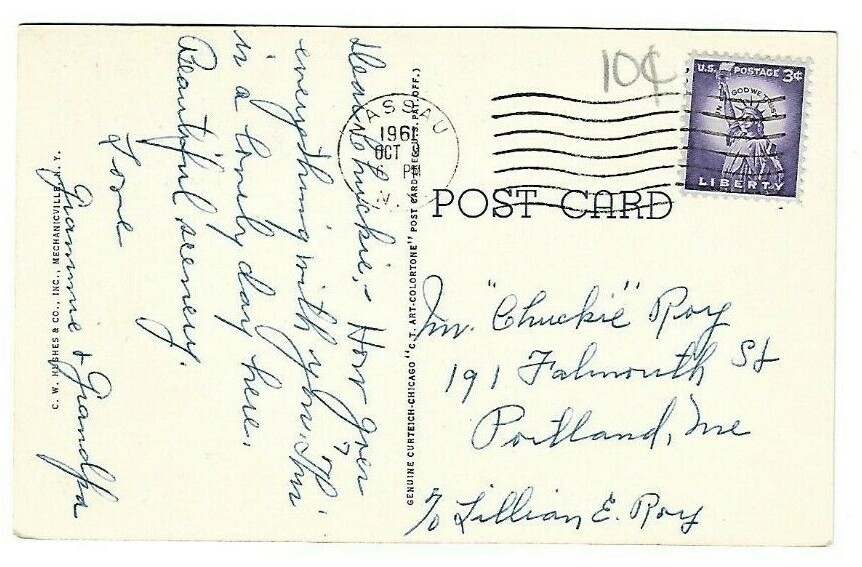 Dear Chuckie,- How goes
everything with you. This
is a lovely day here.
Beautiful scenery.
Love
Grammie & Grandpa
C. W. HUGHES & CO., INC., MECHANICVILLE, N. Y.
GENUINE CURTEICH-CHICAGO "C. T. ART-COLORTONE" POST CARD (REG. U.S. PAT. OFF.)
NASSAU
1961
OCT
PM
N.Y.
10¢
U.S. POSTAGE 3¢
IN GOD WE TRUST
LIBERTY
POST CARD
Mr. "Chuckie" Roy
191 Falmouth St
Portland, Me
c/o Lillian E. Roy